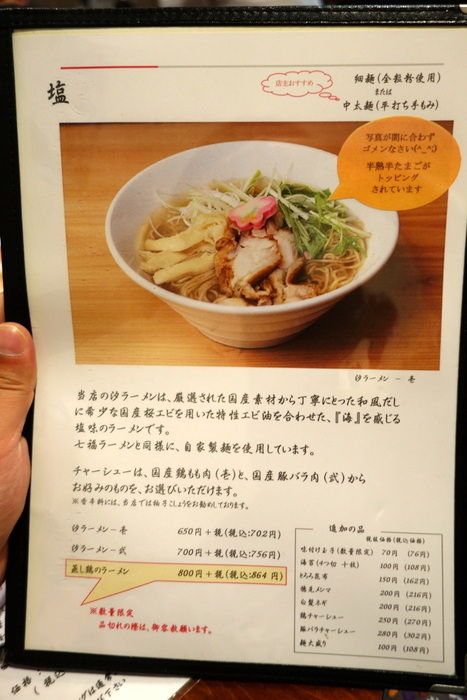 塩
店主おすすめ
細麺(全粒粉使用)
または
中太麺(平打ち手もみ)
写真が間に合わず
ゴメンなさい(^_^;)
半熟半たまごが
トッピング
されています
汐ラーメン － 壱
当店の汐ラーメンは、厳選された国産素材から丁寧にとった和風だし
に希少な国産桜エビを用いた特性エビ油を合わせた、『海』を感じる
塩味のラーメンです。
七福ラーメンと同様に、自家製麺を使用しています。
チャーシューは、国産鶏もも肉(壱)と、国産豚バラ肉(弐)から
お好みのものを、お選びいただけます。
※香辛料には、当店では柚子こしょうをお勧めしております。
汐ラーメン－壱 650円＋税(税込:702円)
汐ラーメン－弐 700円＋税(税込:756円)
蒸し鶏のラーメン 800円＋税(税込:864円)
※数量限定
品切れの際は、御容赦願います。
追加の品
税抜価格(税込価格)
味付け玉子(数量限定) 70円 (76円)
海苔(4つ切 十枚) 100円 (108円)
とろろ昆布 150円 (162円)
穂先メンマ 200円 (216円)
白髪ネギ 200円 (216円)
鶏チャーシュー 250円 (270円)
豚バラチャーシュー 280円 (302円)
麺大盛り 100円 (108円)